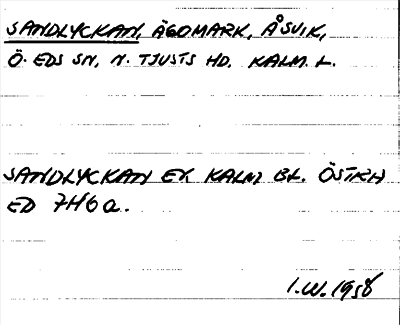 SANDLYCKAN, ÄGOMARK, ÅSVIK,
Ö. EDS SN, N. TJUSTS HD. KALM. L.
SANDLYCKAN EK KALM, BL. ÖSTRA
ED 7H6a.
I.W. 1958